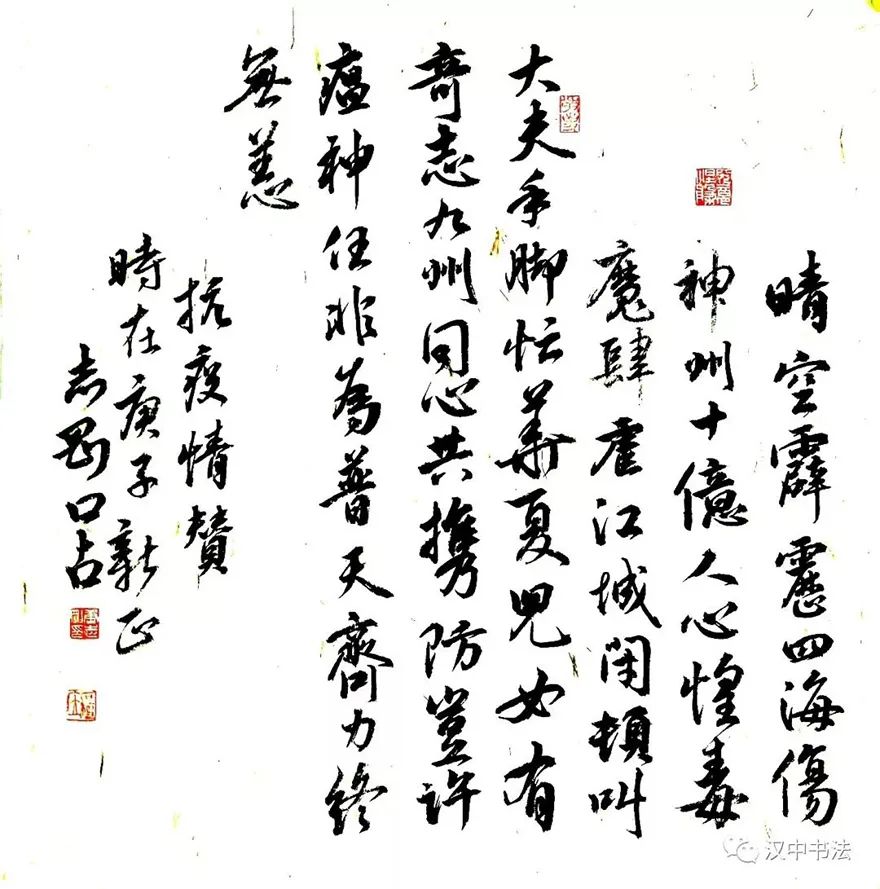 晴空霹靂四海傷
神州十億人心惶毒
魔肆虐江城閉頓叫
大夫手脚忙華夏兒女有
奇志九州同心共携防豈許
瘟神任非為普天齊力終
無恙
抗疫情贊
時在庚子新正
志剛口占
汉中书法